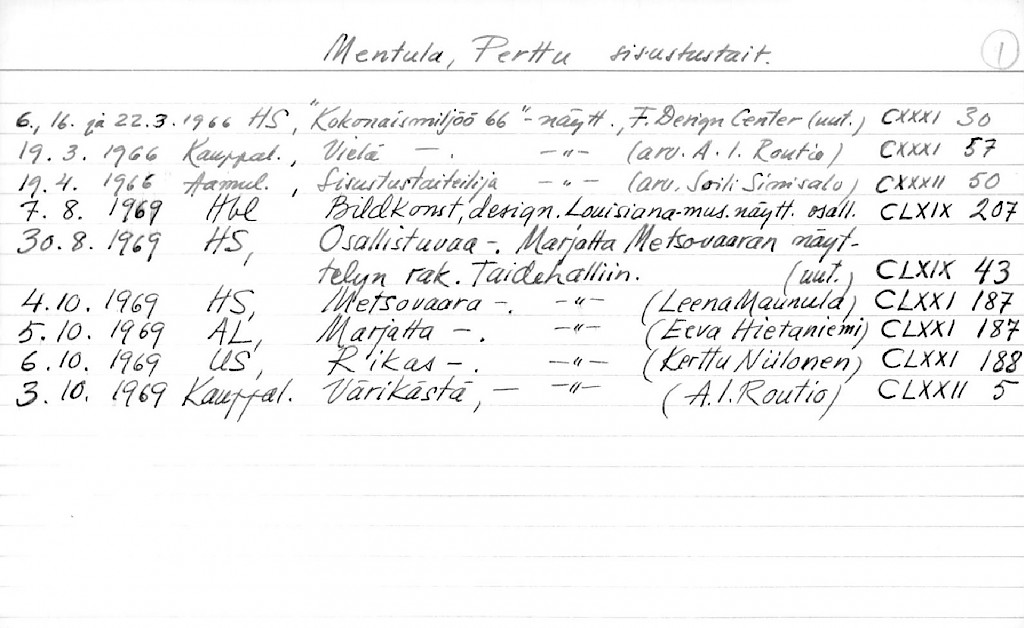 Mentula, Perttu sisustustait. 1
6., 16. ja 22.3.1966 HS, "Kokonaismiljöö 66"-näytt., F. Design Center (uut.) CXXXI 30
19.3.1966 Kauppal., Vielä —. —"— (arv. A.I. Routio) CXXXI 57
19.4.1966 Aamul., Sisustustaiteilija —"— (arv. Soili Sinisalo) CXXXII 50
7.8.1969 Hbl Bildkonst, design. Louisiana-mus. näytt. osall. CLXIX 207
30.8.1969 HS, Osallistuvaa –. Marjatta Metsovaaran näyt-
telyn rak. Taidehalliin. (uut.) CLXIX 43
4.10.1969 HS, Metsovaara –. —"— (Leena Maunula) CLXXI 187
5.10.1969 AL, Marjatta –. —"— (Eeva Hietaniemi) CLXXI 187
6.10.1969 US, Rikas –. —"— (Kerttu Niilonen) CLXXI 188
3.10.1969 Kauppal. Värikästä, — —"— (A.I. Routio) CLXXII 5